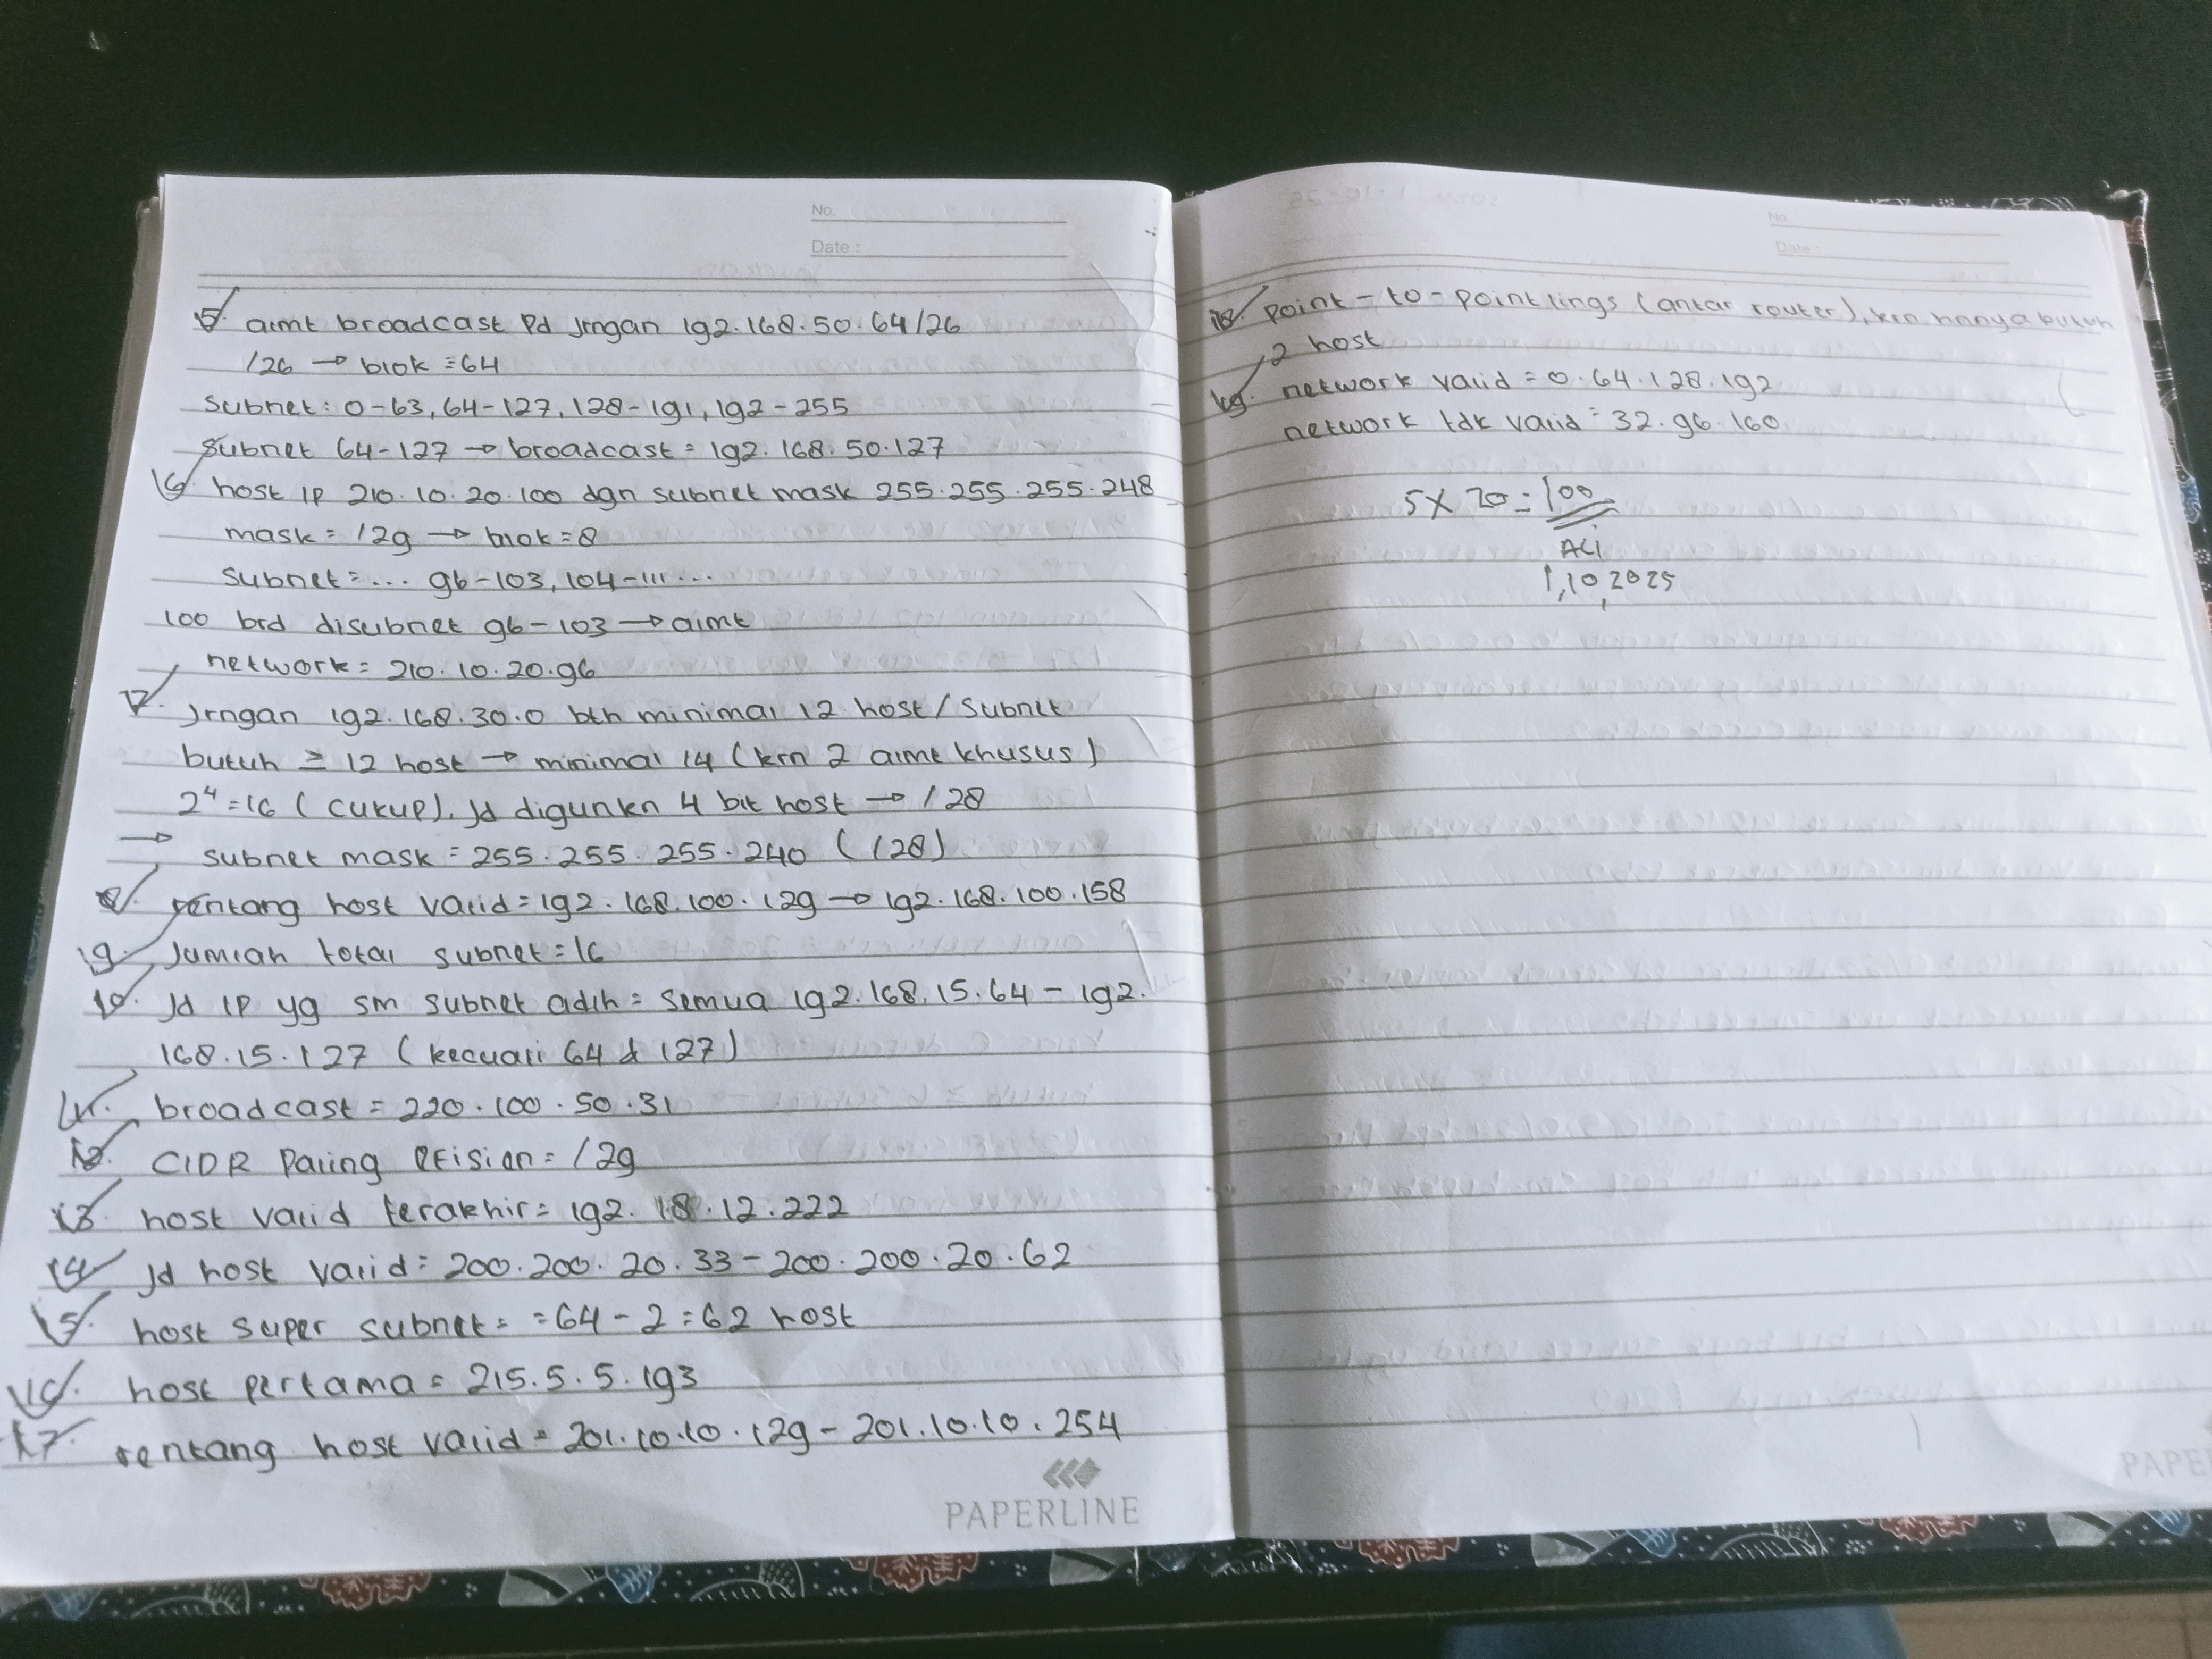 No.
Date :
5. almt broadcast Pd Jrngan 192.168.50.64/26
/26 → blok = 64
Subnet: 0-63, 64-127, 128-191, 192-255
Subnet 64-127 → broadcast = 192.168.50.127
6. host IP 210.10.20.100 dgn subnet mask 255.255.255.248
mask = /29 → blok = 8
Subnet = ... 96-103, 104-111 ...
100 brd disubnet 96-103 → almt
network = 210.10.20.96
7. Jrngan 192.168.30.0 bth minimal 12 host/Subnet
butuh ≥ 12 host → minimal 14 (krn 2 almt khusus)
2⁴ = 16 (cukup). Jd digunkn 4 bit host → /28
→ subnet mask = 255.255.255.240 (/28)
8. rentang host valid = 192.168.100.129 → 192.168.100.158
9. Jumlah total subnet = 16
10. Jd IP yg sm subnet adlh = semua 192.168.15.64 - 192.
168.15.127 (kecuali 64 & 127)
11. broadcast = 220.100.50.31
12. CIDR Paling efisian = /29
13. host valid terakhir = 192.18.12.222
14. Jd host valid = 200.200.20.33 - 200.200.20.62
15. host super subnet = = 64 - 2 = 62 host
16. host pertama = 215.5.5.193
17. rentang host valid = 201.10.10.129 - 201.10.10.254
PAPERLINE
No.
Date :
18. point - to - point lings (antar router), krn hanya butuh
2 host
19. network valid = 0.64.128.192
network tdk valid = 32.96.160
5 X 20 = 100
1,10,2025